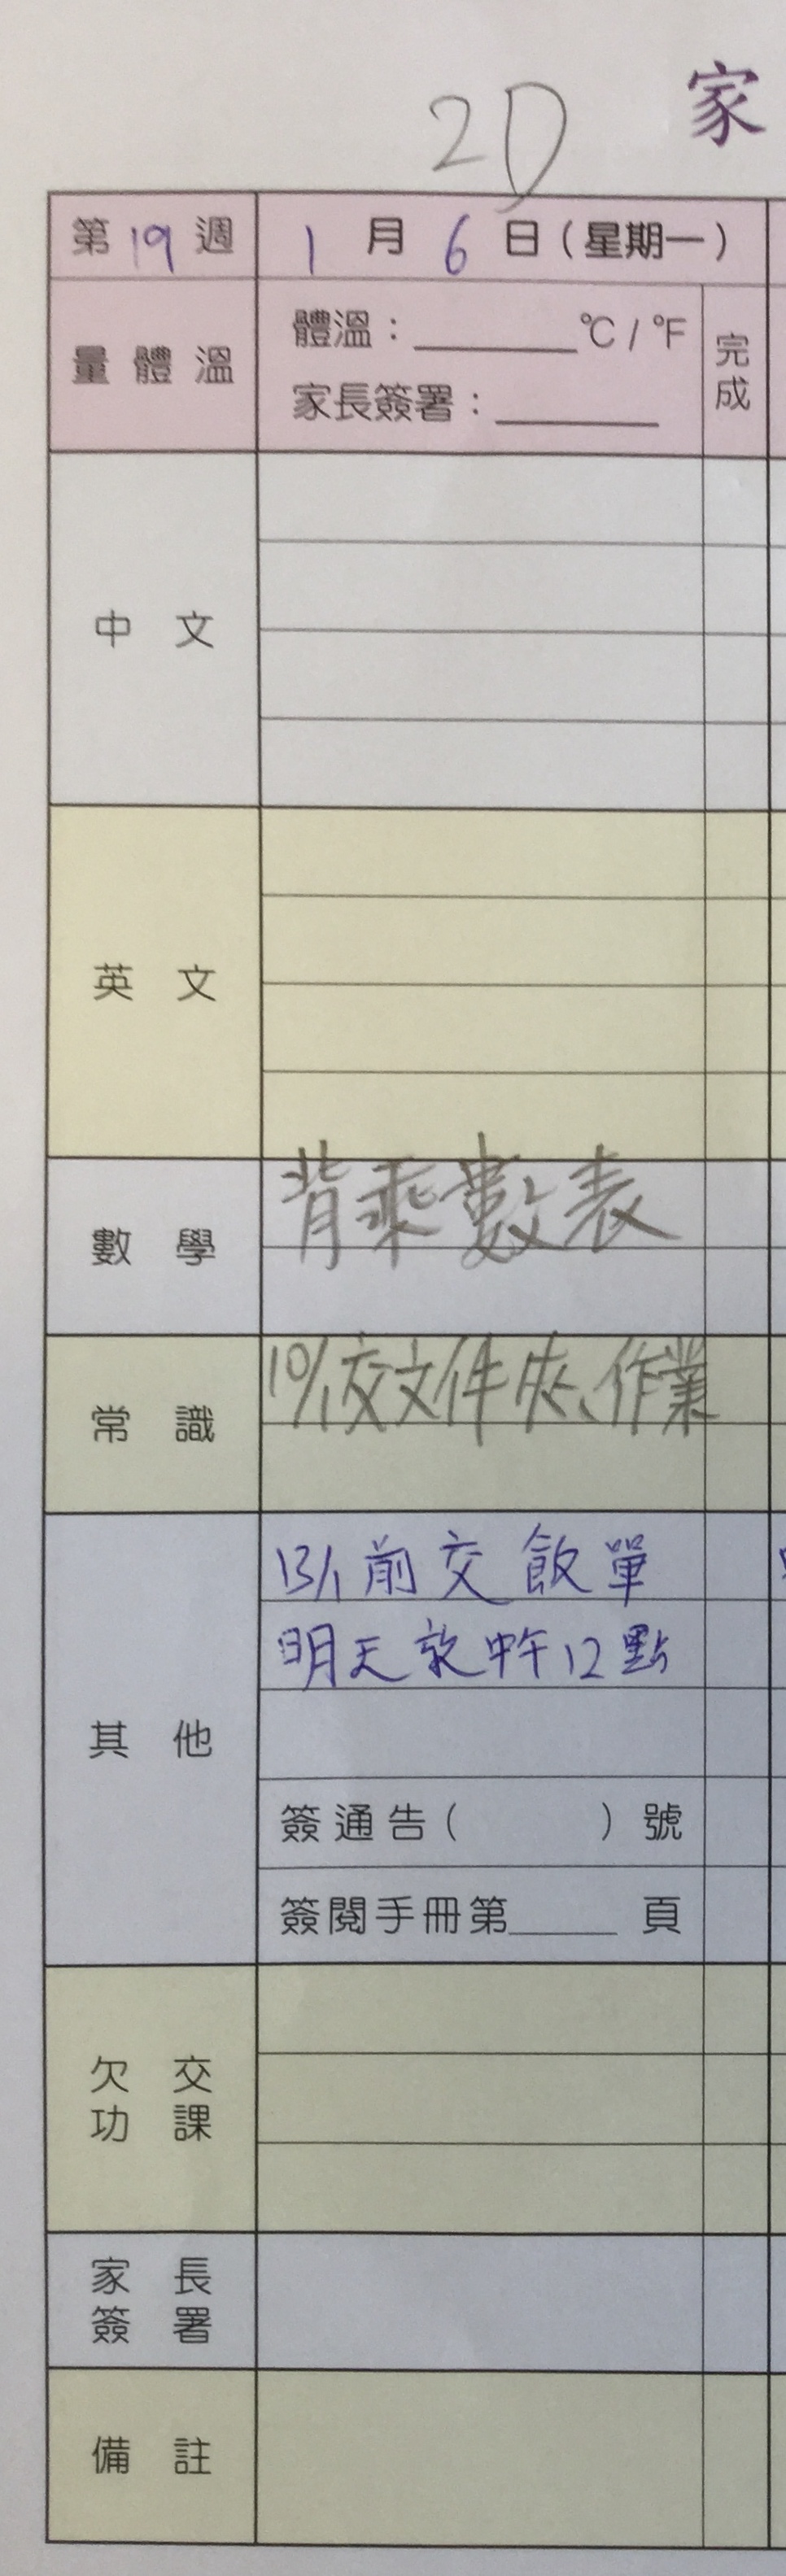 2D
家
第19週 1月6日(星期一)
量體溫 體溫：______℃/℉ 完成
家長簽署：______
中文
英文
數學 背乘數表
常識 10/1交文件夾、作業
其他 13/1前交飯單
明天放中午12點
簽通告( )號
簽閱手冊第____頁
欠交
功課
家長
簽署
備註